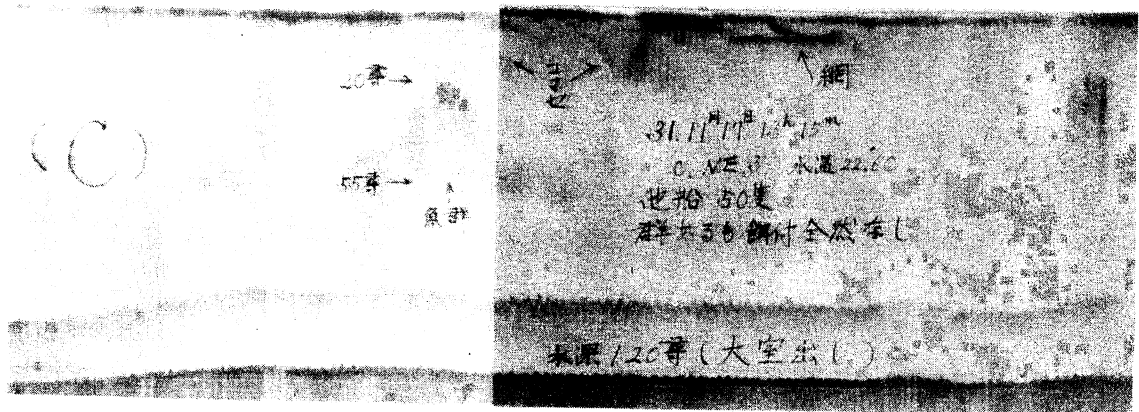 20尋→
55尋→
↑
魚群
ヨセ
網
31.11月17日13h 15m
C. NE.3 水温22.2C
他船50隻
群大なるも餌付全然なし
水深120尋(大室出し)